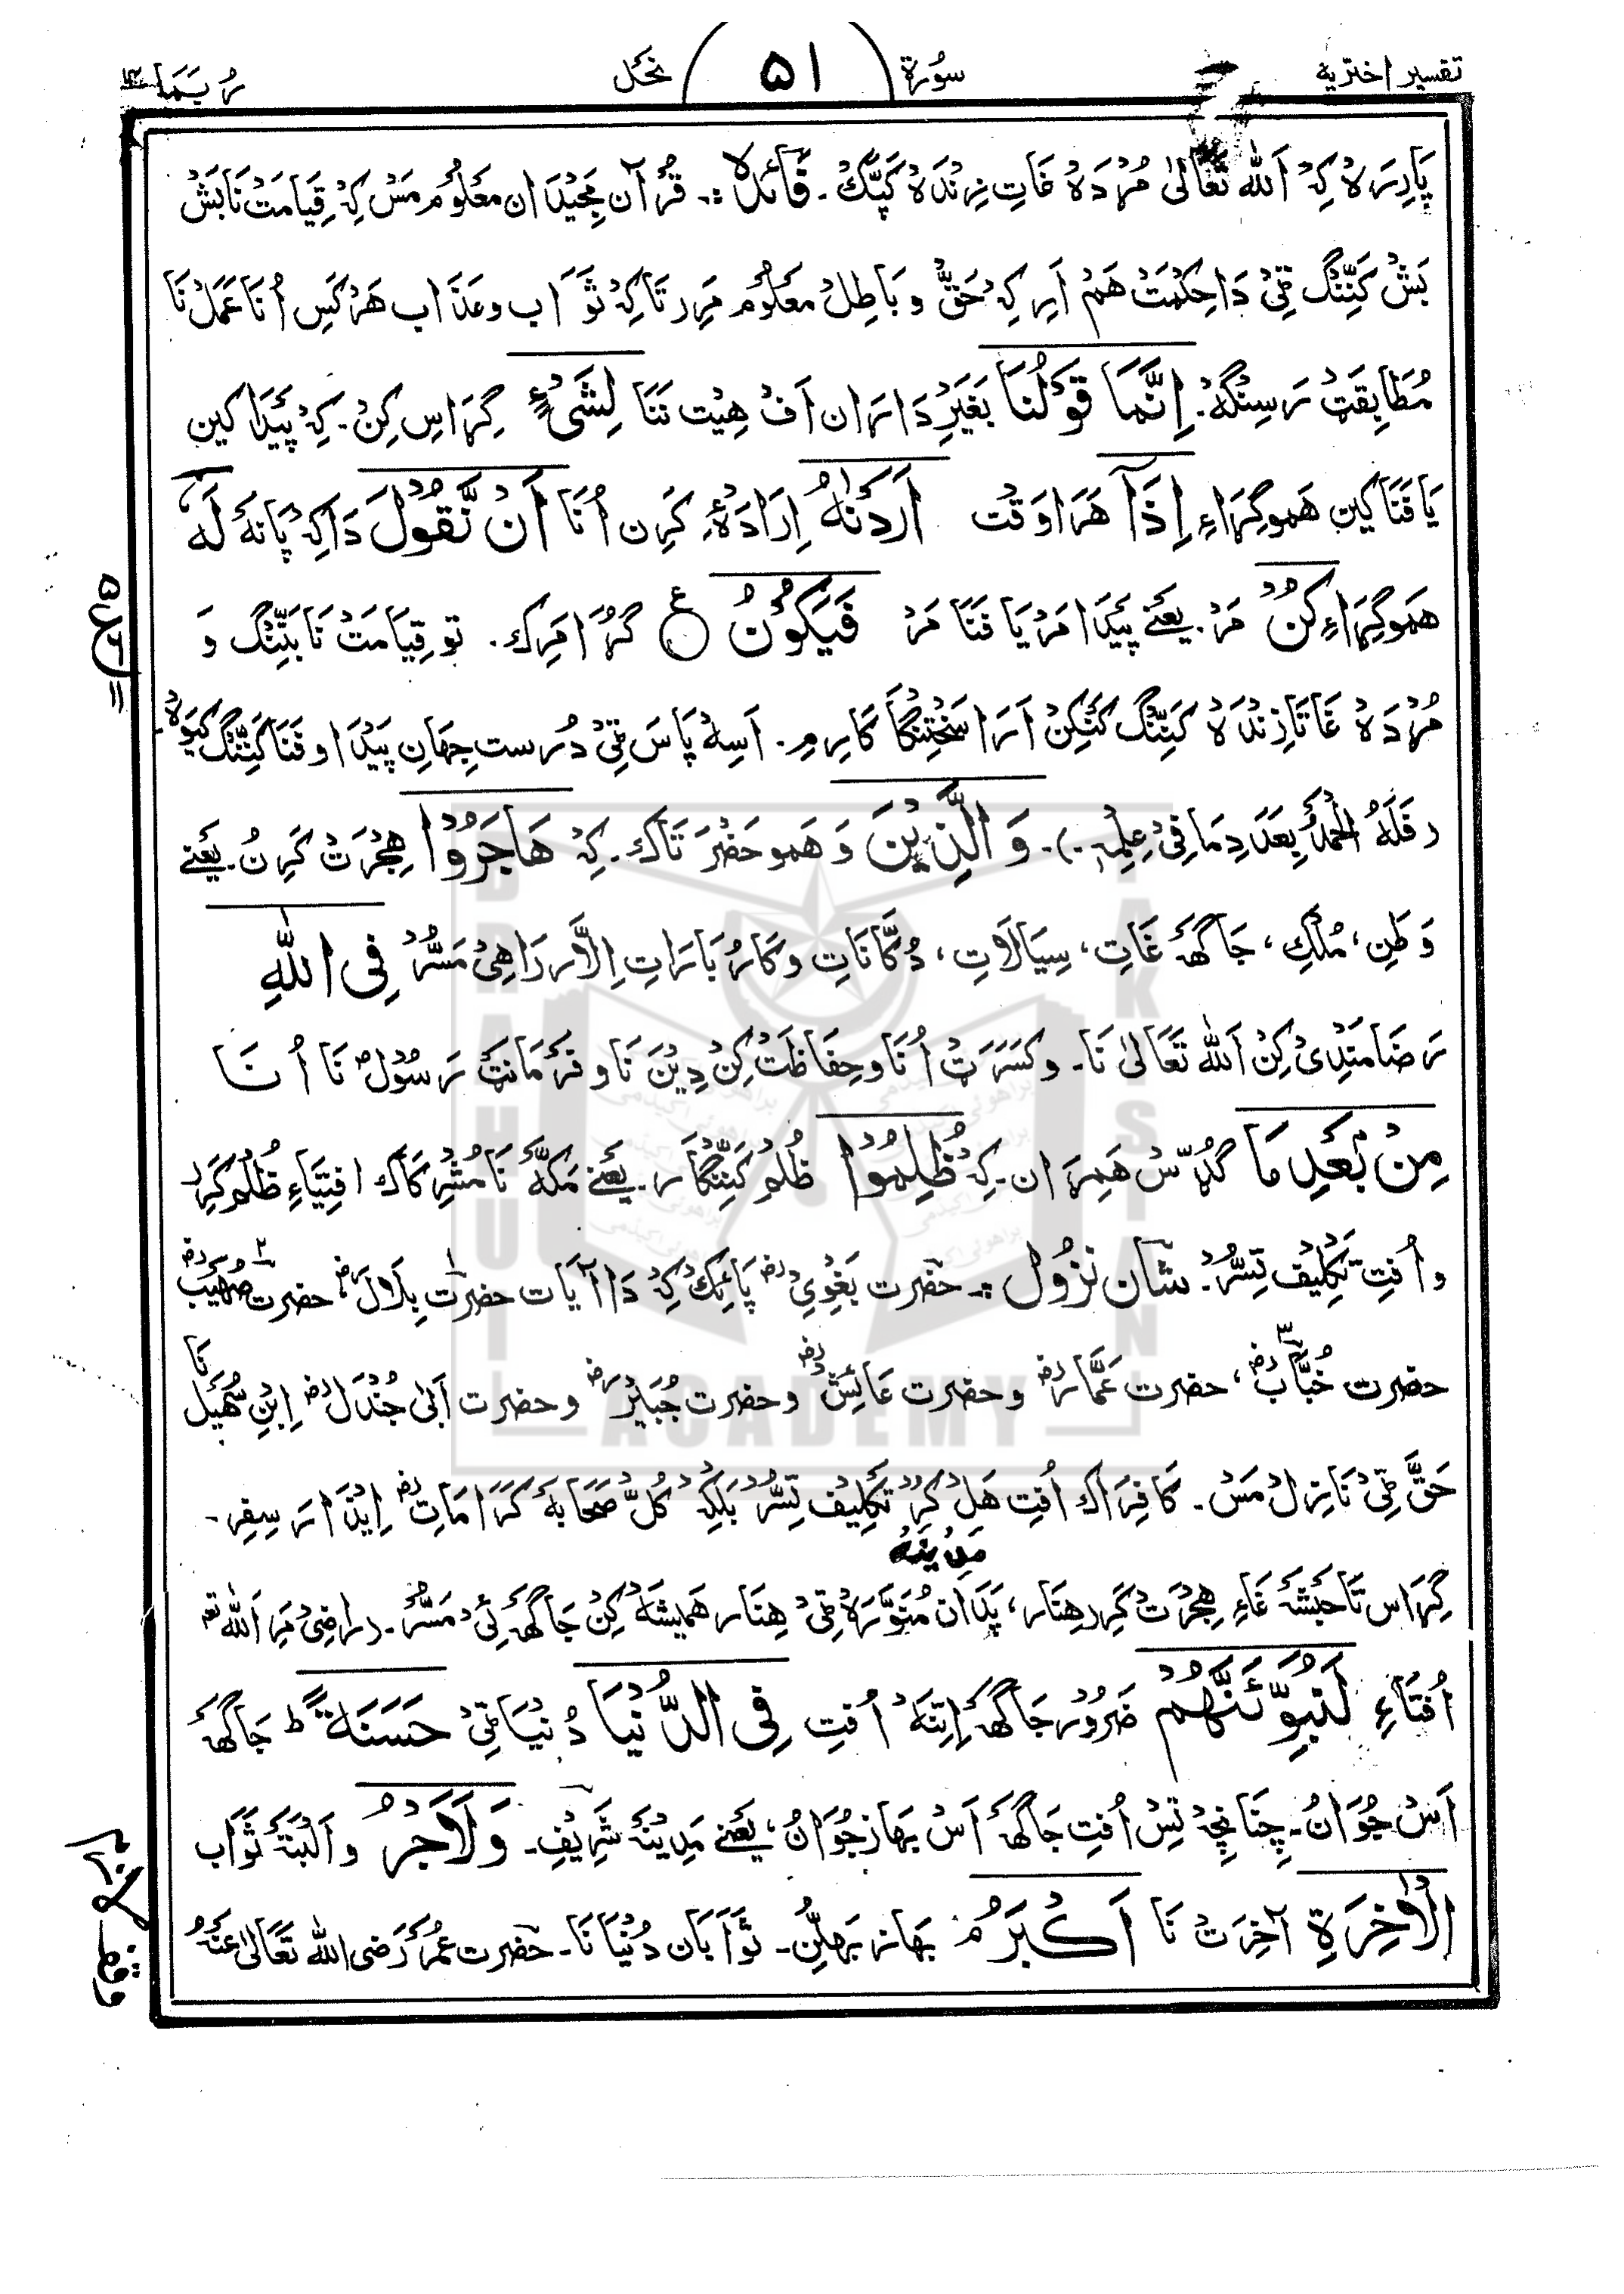 تفسیر اختریه سُورة ۵۱ نَحل رُبَمَا ۱۴
پَادِرَہ کِہ اَللہ تَعَالیٰ مُرْدَہ غَاتِ زِنْدَہ کَپَّکْ۔ فَائدہ :۔ قُرْآن مَجِیْدَان مَعلُوم مَسْ کِہ قِیَامَتْ نَا بَشْ
بَشْ کَنِّنْگ ٹِیْ دَا حِکْمَتْ هَمْ اَرِ کِہ حَقّ و بَاطِلْ مَعلُوم مَرِ تَا کِہ ثَوَاب و عَذَاب هَرْ کَسِ اُنَا عَمَلْ نَا
مُطَابِقَتْ رَسِنْگِہْ۔ اِنَّمَا قَوْلُنَا بَغَیرِ دَارَان اَفْ هِیْت نَنَا لِشَیْءٍ گِرَاسِ کِنْ۔ کِہ پَیْدَا کِین
یَا فَنَا کِین هَمو گِرَاءِ اِذَآ هَرَا وَقْت اَرَدْنٰهُ اِرَادَہءِ کَرِن اُنَا اَنْ نَّقُوْلَ دَا کِہ پَانَہْ لَهٗ
هَمو گِرَاءِ کُنْ مَرْ۔ یعنے پَیْدَا مَرْ یَا فَنَا مَرْ فَیَکُوْنُ ع گُرَا مَرِک۔ تو قِیَامَتْ نَا بَنِّنْگ وَ
مُرْدَہ غَاتَا زِنْدَہ کَنِّنْگ کَنْکِنْ اَرَا سَخْتِنْگَا کَارِمِ۔ اَسِہ پَاسَ ٹِیْ دُرست جِهَانِ پَیْدَا و فَنَا کَنِّنْگ کِیْوَہ۔
(فَلَهُ الْحَمْدُ بِعَدَدِ مَا فِیْ عِلْمِہٖ۔)۔ وَ الَّذِیْنَ وَ هَمو حَضْرَتَاک۔ کِہْ هَاجَرُوْا هِجْرَتْ کَرِنُ۔ یعنے
وَطَنِ، مُلْکِ، جَاگَہ غَاتِ، سِیَالَاتِ، دُکَّانَاتِ و کَارُبَارَاتِ اِلَّار رَاهِیْ مَسُّرْ فِی اللّٰهِ
رَضَامَنْدِیْ کِنْ اَللہ تَعَالیٰ نَا۔ و کَسَرَٹْ اُنَا و حِفَاظَتْ کِنْ دِیْنَ نَا و فَرْمَانَٹَ رَسُوْلؐ نَا اُنَا
مِنْ بَعْدِ مَا گُڈّس هَمِرَان۔ کِہْ ظُلِمُوْا ظُلْم کَنِّنْگَار۔ یعنے مَکَّہ نَا مُشْرِکَاک اَفْتِیَاءِ ظُلْم کَرِ
و اُفتِ تَکْلِیْف تِسُّرْ۔ شان نزول :۔ حضرت بَغْوِیْؒ پَائِکْ کِہ دَا آیَات حضرت بِلَالؓ، حضرت صُهَیْبؓ
حضرت خُبَّابؓ، حضرت عَمَّارؓ و حضرت عَابِسؓ و حضرت جُبَیرؓ و حضرت اَبی جُنْدَلؓ اِبْنِ سُهَیْل نَا
حَقّ ٹِیْ نَازِلْ مَسْ۔ کَافِرَاک اُفتِ هَلْ کَرْ تَکْلِیْف تِسُّرْ بَلْکِہْ کُلّ صَحَابَہ کَرَامَاتِؓ اِیْذَا رَسِفِرْ۔
گِرَاس تَا حَبْشَہ غَاءِ هِجْرَتْ کَرِ هِنَار، پَدَان مَدِیْنَہ مُنَوَّرَہ ٹِیْ هِنَار هَمِیشَہ کِنْ جَاگَہْ ئِیْ مَسُّرْ۔ (رَاضِیْ مَرِ اَللہ تعہ
اُفتَاءِ لَنُبَوِّئَنَّهُمْ ضَرُوْر جَاگَہ اِتِنَہْ اُفتِ فِی الدُّنْیَا دُنْیَا ٹِیْ حَسَنَةً ط جَاگَہ
اَسْ جُوَانُ۔ چِنَانچِہْ تِسْ اُفتِ جَاگَہ اَسْ بَهَاز جُوَانُ، یعنے مَدِیْنَہ شَرِیْفِ۔ وَلَاَجْرُ و اَلْبَتَّہ ثَوَاب
الْاٰخِرَةِ آخِرَتْ نَا اَکْبَرُ م بَهَاز بَهَلُّنْ۔ ثَوَابَان دُنْیَا نَا۔ حضرت عُمَرْ رَضی اللہ تَعَالیٰ عَنْہُ